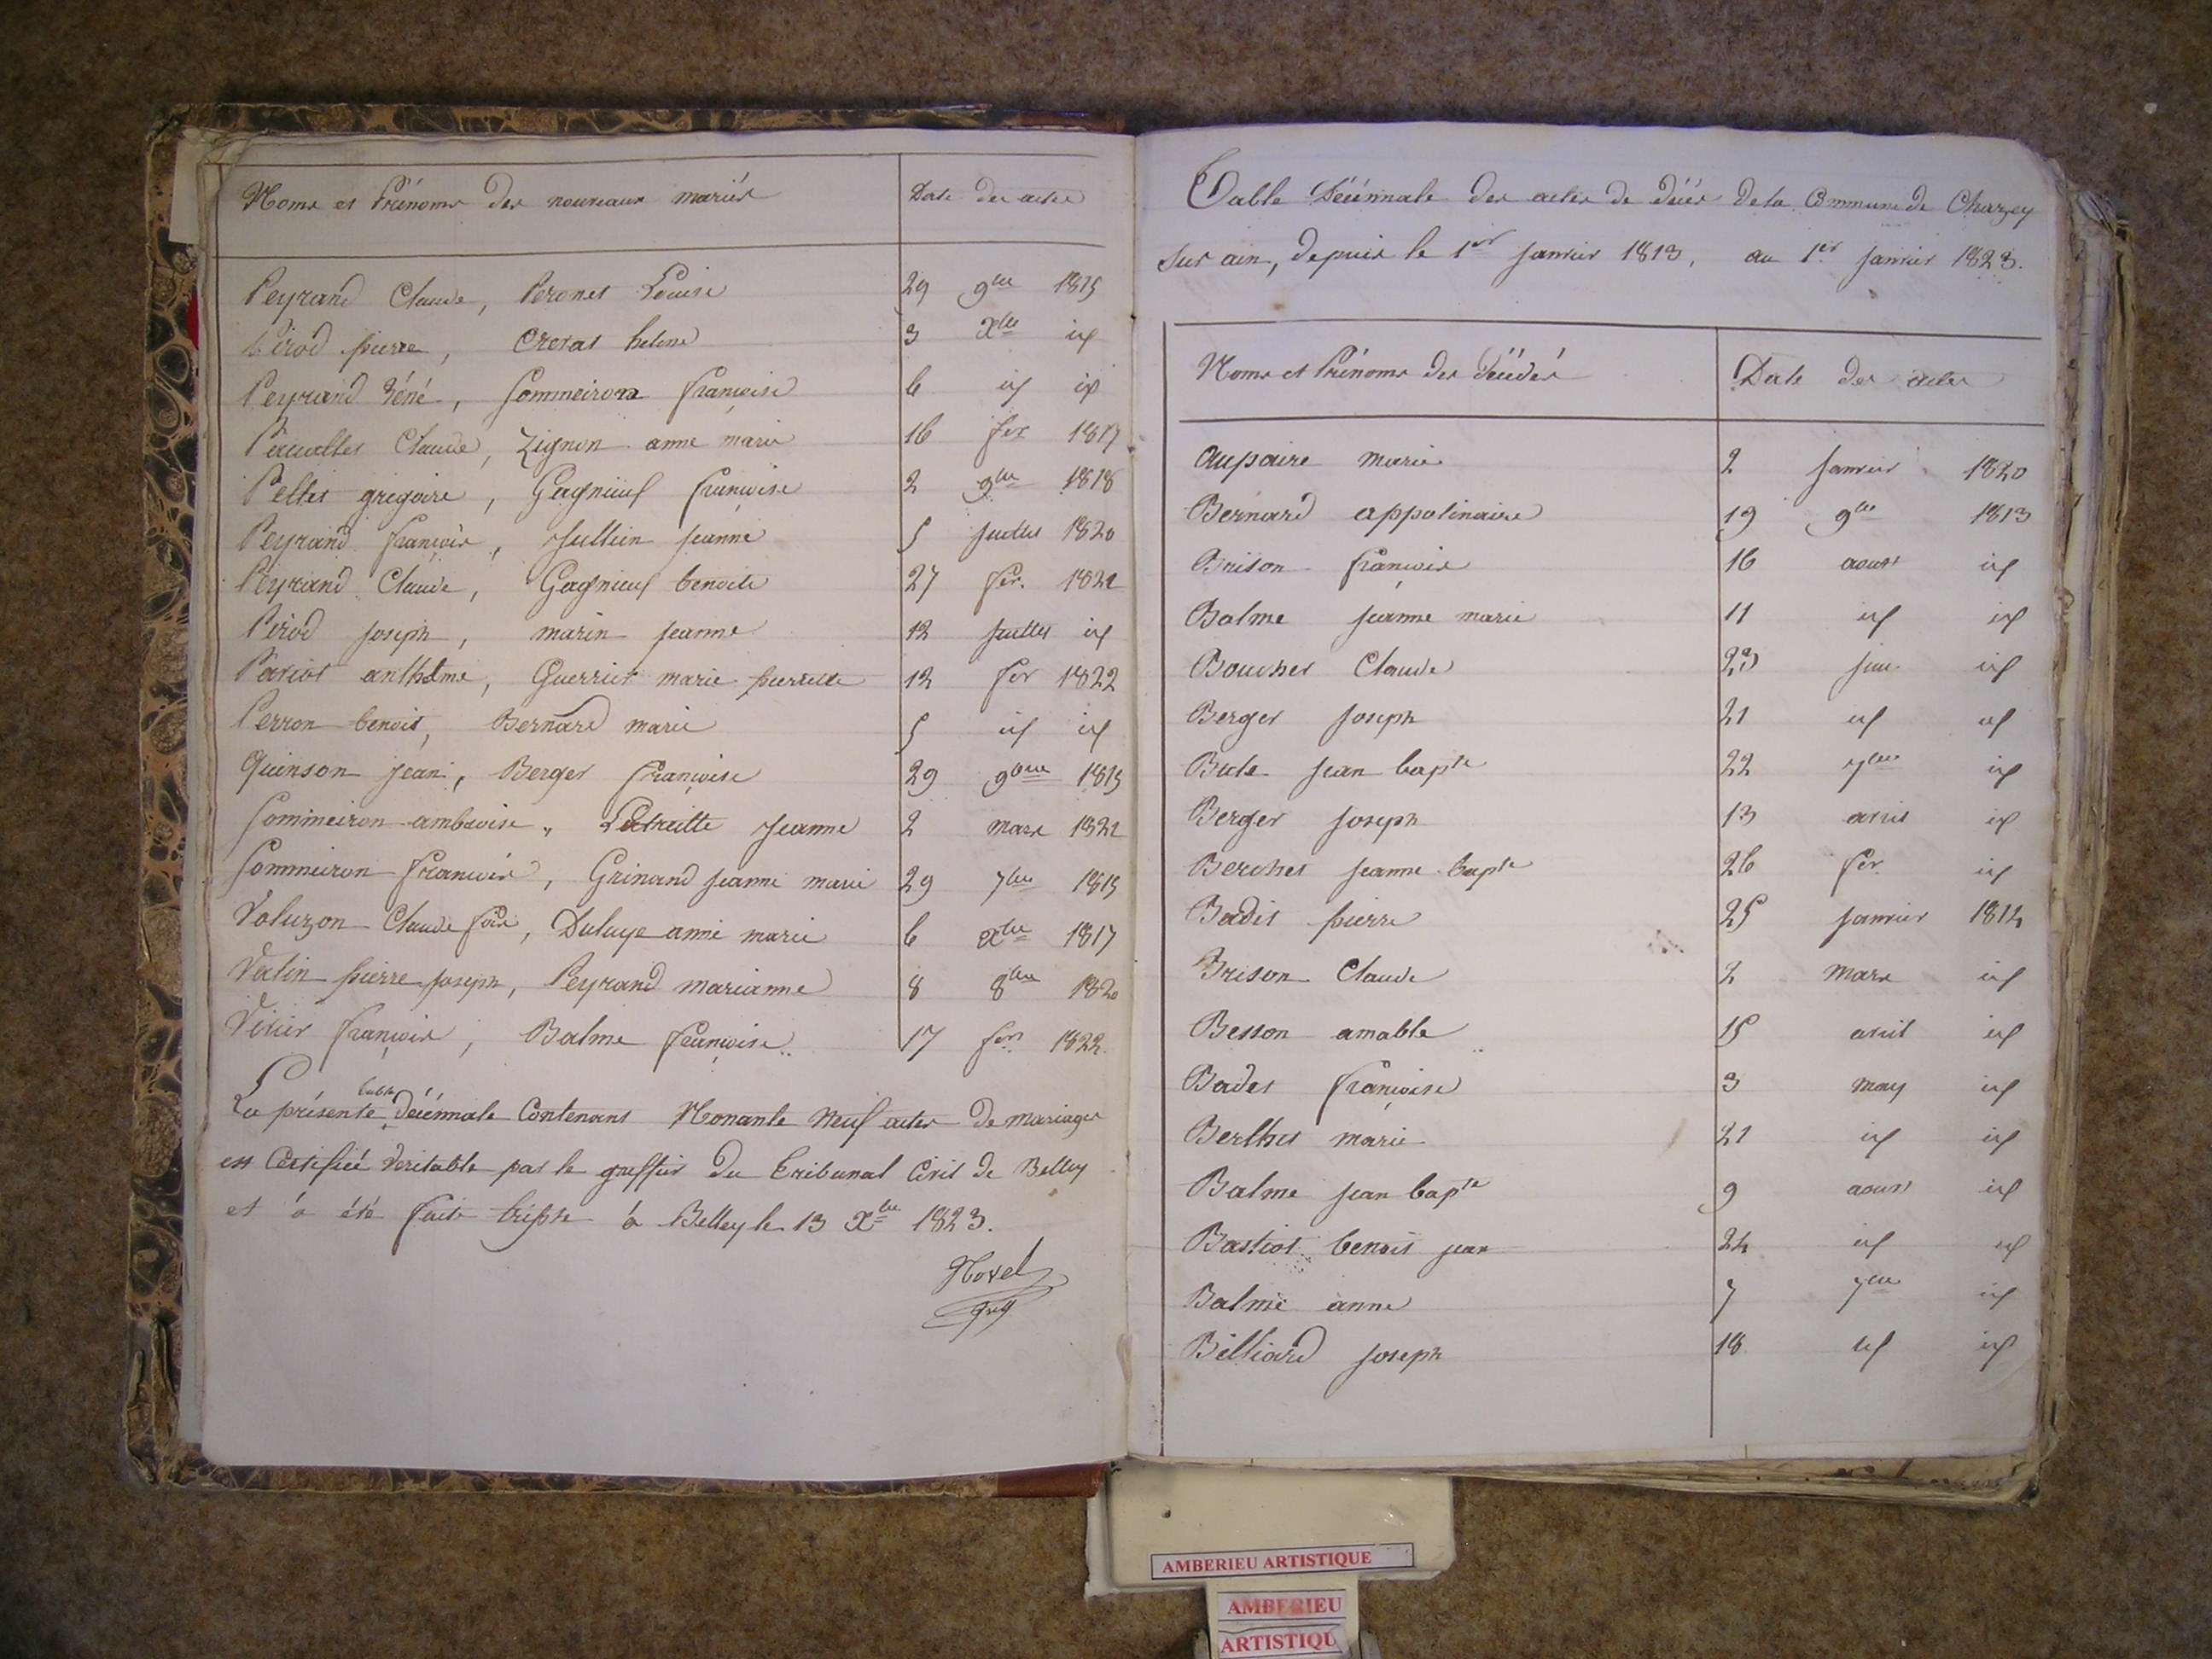 Noms et Prénoms des nouveaux mariés Date des actes
Peyrand Claude, Peronet Louise 29 9bre 1815
Pirod pierre, Cretat helene 3 Xbre id
Peyrand Réné, Sommeiron françoise 6 id id
Claude, Zignon anne marie 16 fer 1817
Peltet gregoire, Gagnieuf françoise 2 9bre 1818
Peyrand françois, Jullien jeanne 5 juillet 1820
Peyrand Claude, Gagnieuf benoite 27 fer. 1821
Pirod joseph, marin jeanne 12 juillet id
Pariot anthelme, Guerrier marie pierrette 12 fer 1822
Perron benoit, Bernard marie 5 id id
Quinson jean, Berger françoise 29 9bre 1815
Sommeiron ambroise, Latreille Jeanne 2 mars 1821
Sommeiron françois, Grinand jeanne marie 29 7bre 1815
Voluzon Claude fois, anne marie 6 Xbre 1817
Vatin pierre joseph, Peyrand marianne 8 8bre 1820
françois, Balme françoise 17 fer 1822.
table
La présente Décénnale Contenant Nonante Neuf actes de mariages
est Certifiée veritable par le greffier du tribunal Civil de Belley
et à été faite triple à Belley le 13 Xbre 1823.
Table Décénnale des actes de décès de la Commune de Chazey
sur ain, depuis le 1er janvier 1813, au 1er janvier 1823.
Noms et Prénoms des décédés Date des actes
Aupaire marie 2 janvier 1820
Bernard appolinaire 19 9bre 1813
Brison françois 16 aoust id
Balme jeanne marie 11 id id
Boucher Claude 23 juin id
Berger joseph 21 id id
jean bapte 22 7bre id
Berger joseph 13 avril id
Berchet jeanne bapte 26 fer id
Badit pierre 25 janvier 1814
Brison Claude 2 mars id
Besson amable 15 avril id
Badet françoise 3 may id
Berthet marie 21 id id
Balme jean bapte 9 aoust id
Bastiot benoit jean 24 id id
Balme anne 7 7bre id
Billiard joseph 18 id id
AMBERIEU ARTISTIQUE
AMBERIEU
ARTISTIQU